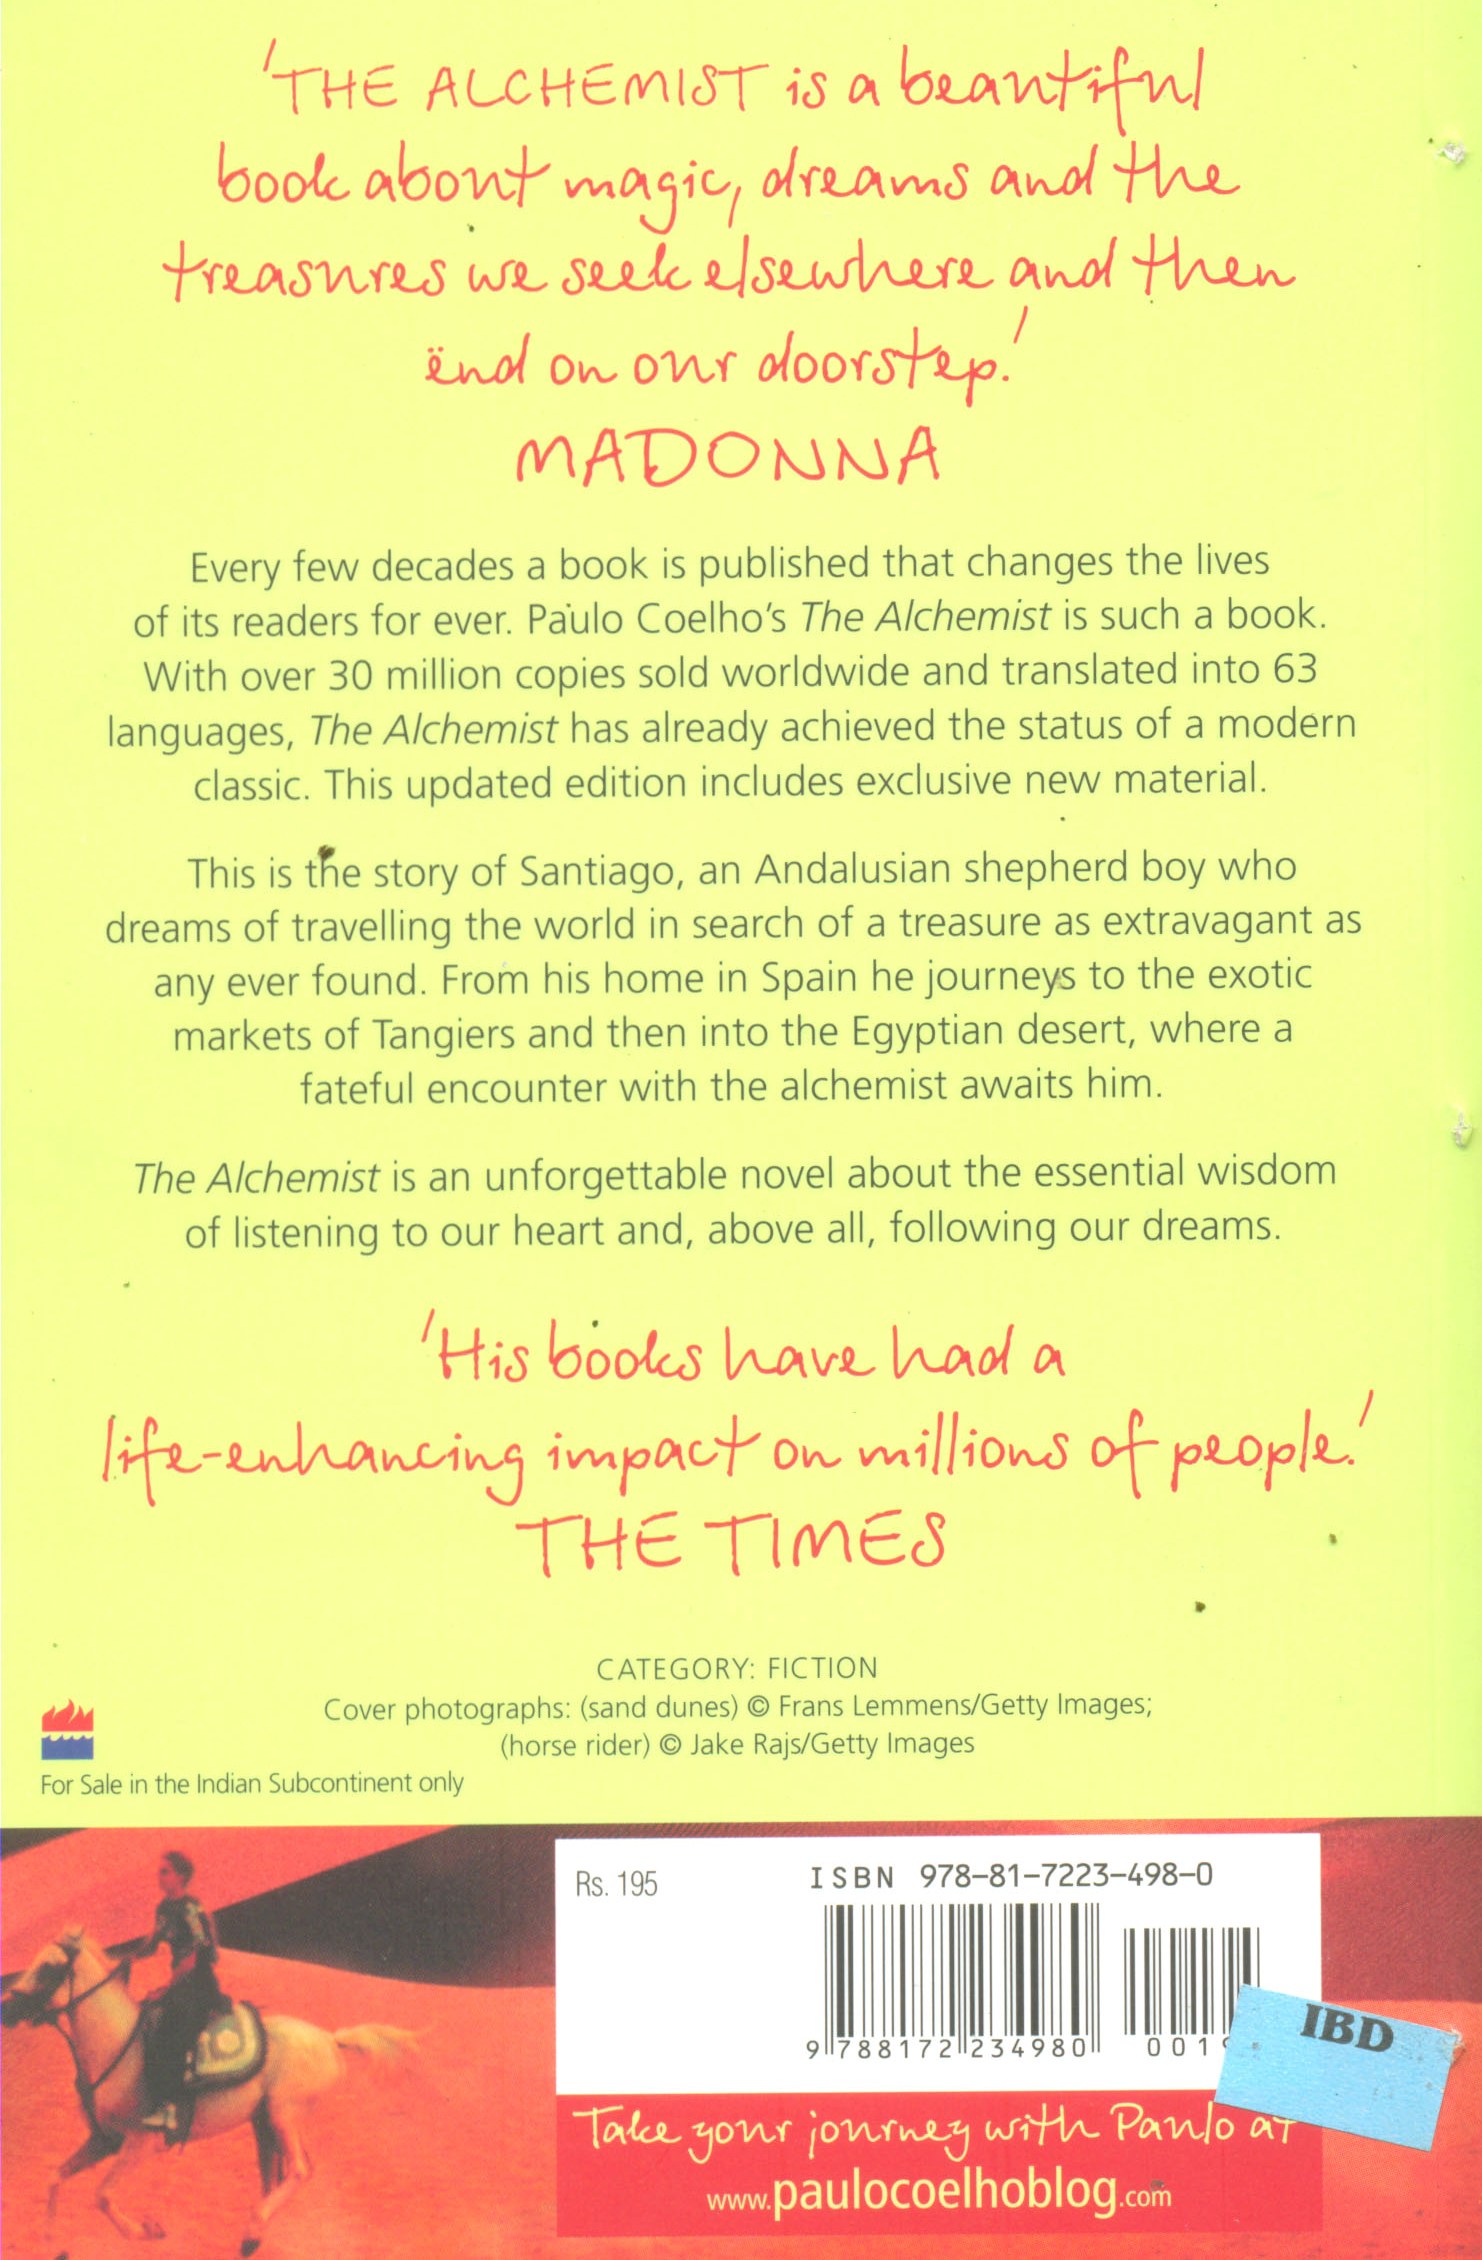 'THE ALCHEMIST is a beautiful
book about magic, dreams and the
treasures we seek elsewhere and then
end on our doorstep.'
MADONNA
Every few decades a book is published that changes the lives
of its readers for ever. Paulo Coelho's The Alchemist is such a book.
With over 30 million copies sold worldwide and translated into 63
languages, The Alchemist has already achieved the status of a modern
classic. This updated edition includes exclusive new material.
This is the story of Santiago, an Andalusian shepherd boy who
dreams of travelling the world in search of a treasure as extravagant as
any ever found. From his home in Spain he journeys to the exotic
markets of Tangiers and then into the Egyptian desert, where a
fateful encounter with the alchemist awaits him.
The Alchemist is an unforgettable novel about the essential wisdom
of listening to our heart and, above all, following our dreams.
'His books have had a
life-enhancing impact on millions of people.'
THE TIMES
CATEGORY: FICTION
Cover photographs: (sand dunes) © Frans Lemmens/Getty Images;
(horse rider) © Jake Rajs/Getty Images
For Sale in the Indian Subcontinent only
Rs. 195
ISBN 978-81-7223-498-0
9 788172 234980
001
IBD
Take your journey with Paulo at
www.paulocoelhoblog.com